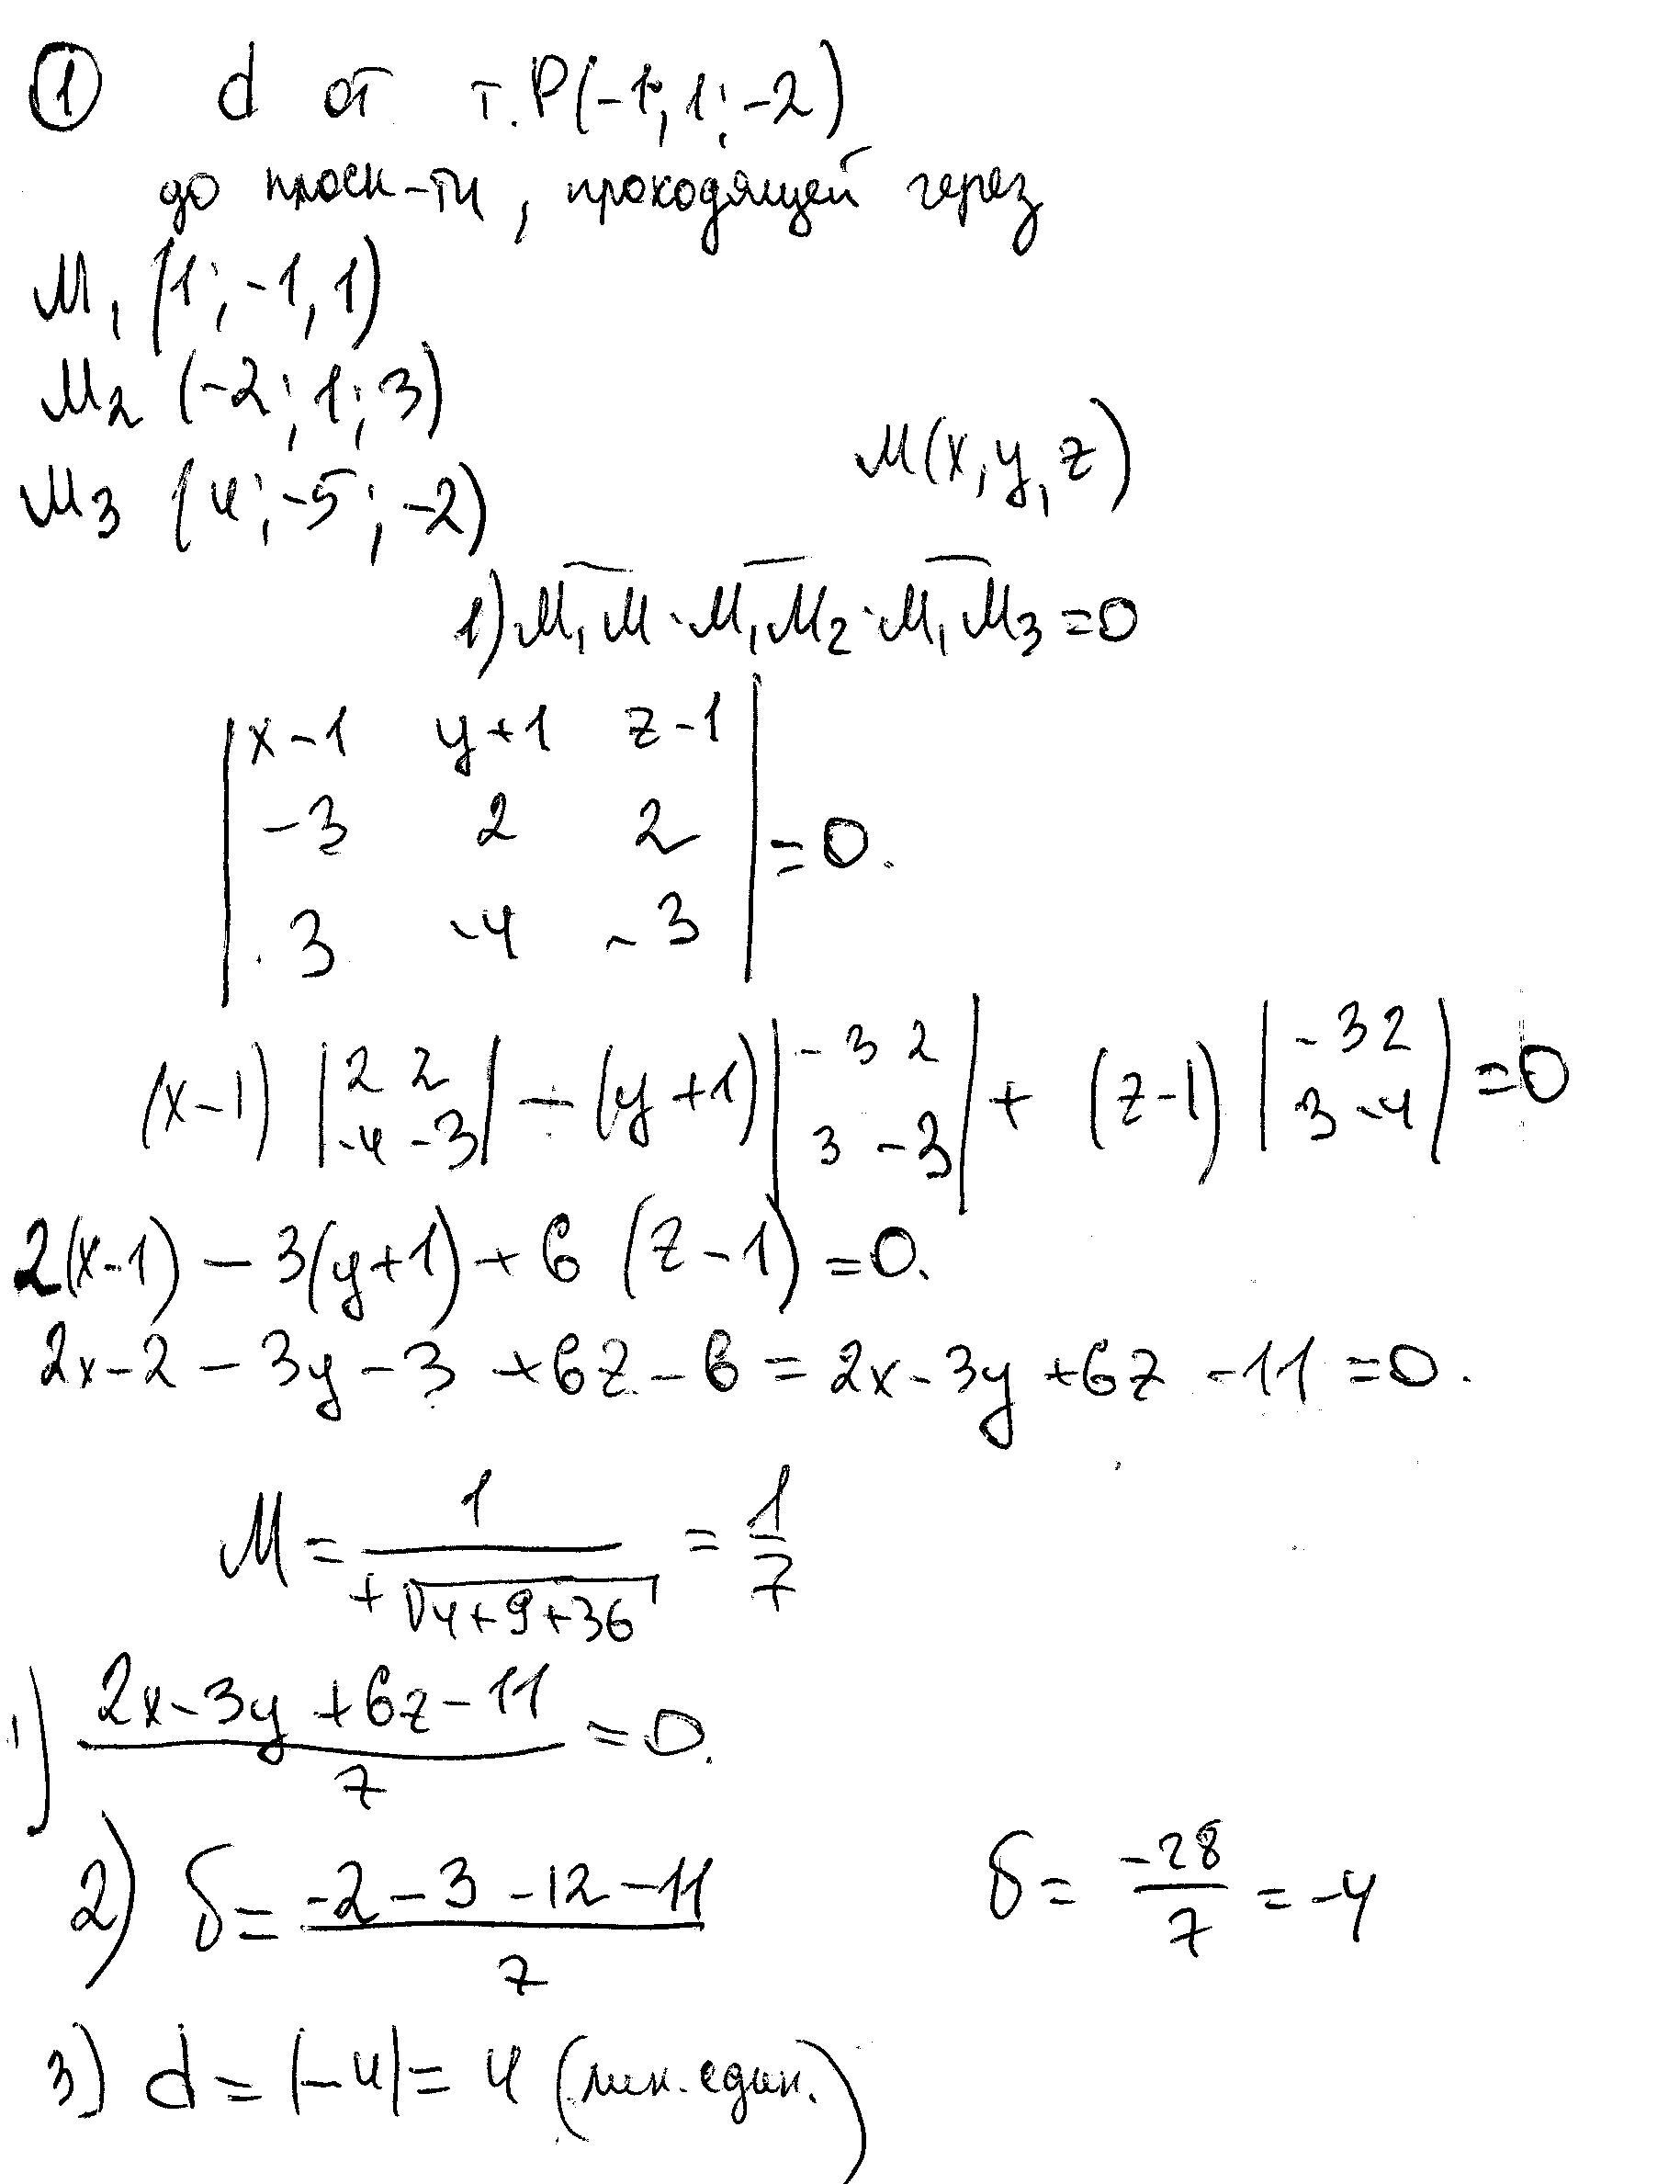 ① d от т. P(-1; 1; -2)
до плоск-ти, проходящей через
M₁ (1; -1, 1)
M₂ (-2; 1; 3)
M(x, y, z)
M₃ (4; -5; -2)
1) M₁M · M₁M₂ · M₁M₃ = 0
| x-1 y+1 z-1 |
| -3 2 2 | = 0.
| 3 -4 -3 |
(x-1) |2 2; -4 -3| - (y+1) |-3 2; 3 -3| + (z-1) |-3 2; 3 -4| = 0
2(x-1) - 3(y+1) + 6(z-1) = 0.
2x-2-3y-3+6z-6 = 2x-3y+6z-11 = 0.
M = 1/(+√(4+9+36)) = 1/7
1) (2x-3y+6z-11)/7 = 0.
2) δ = (-2-3-12-11)/7 δ = -28/7 = -4
3) d = |-4| = 4 (лин. един.)